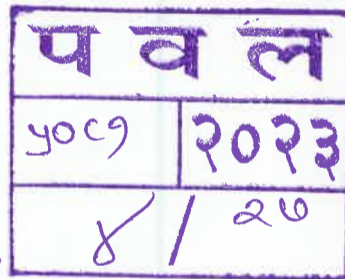 प व ल
५०८१ २०२३
४ / २७